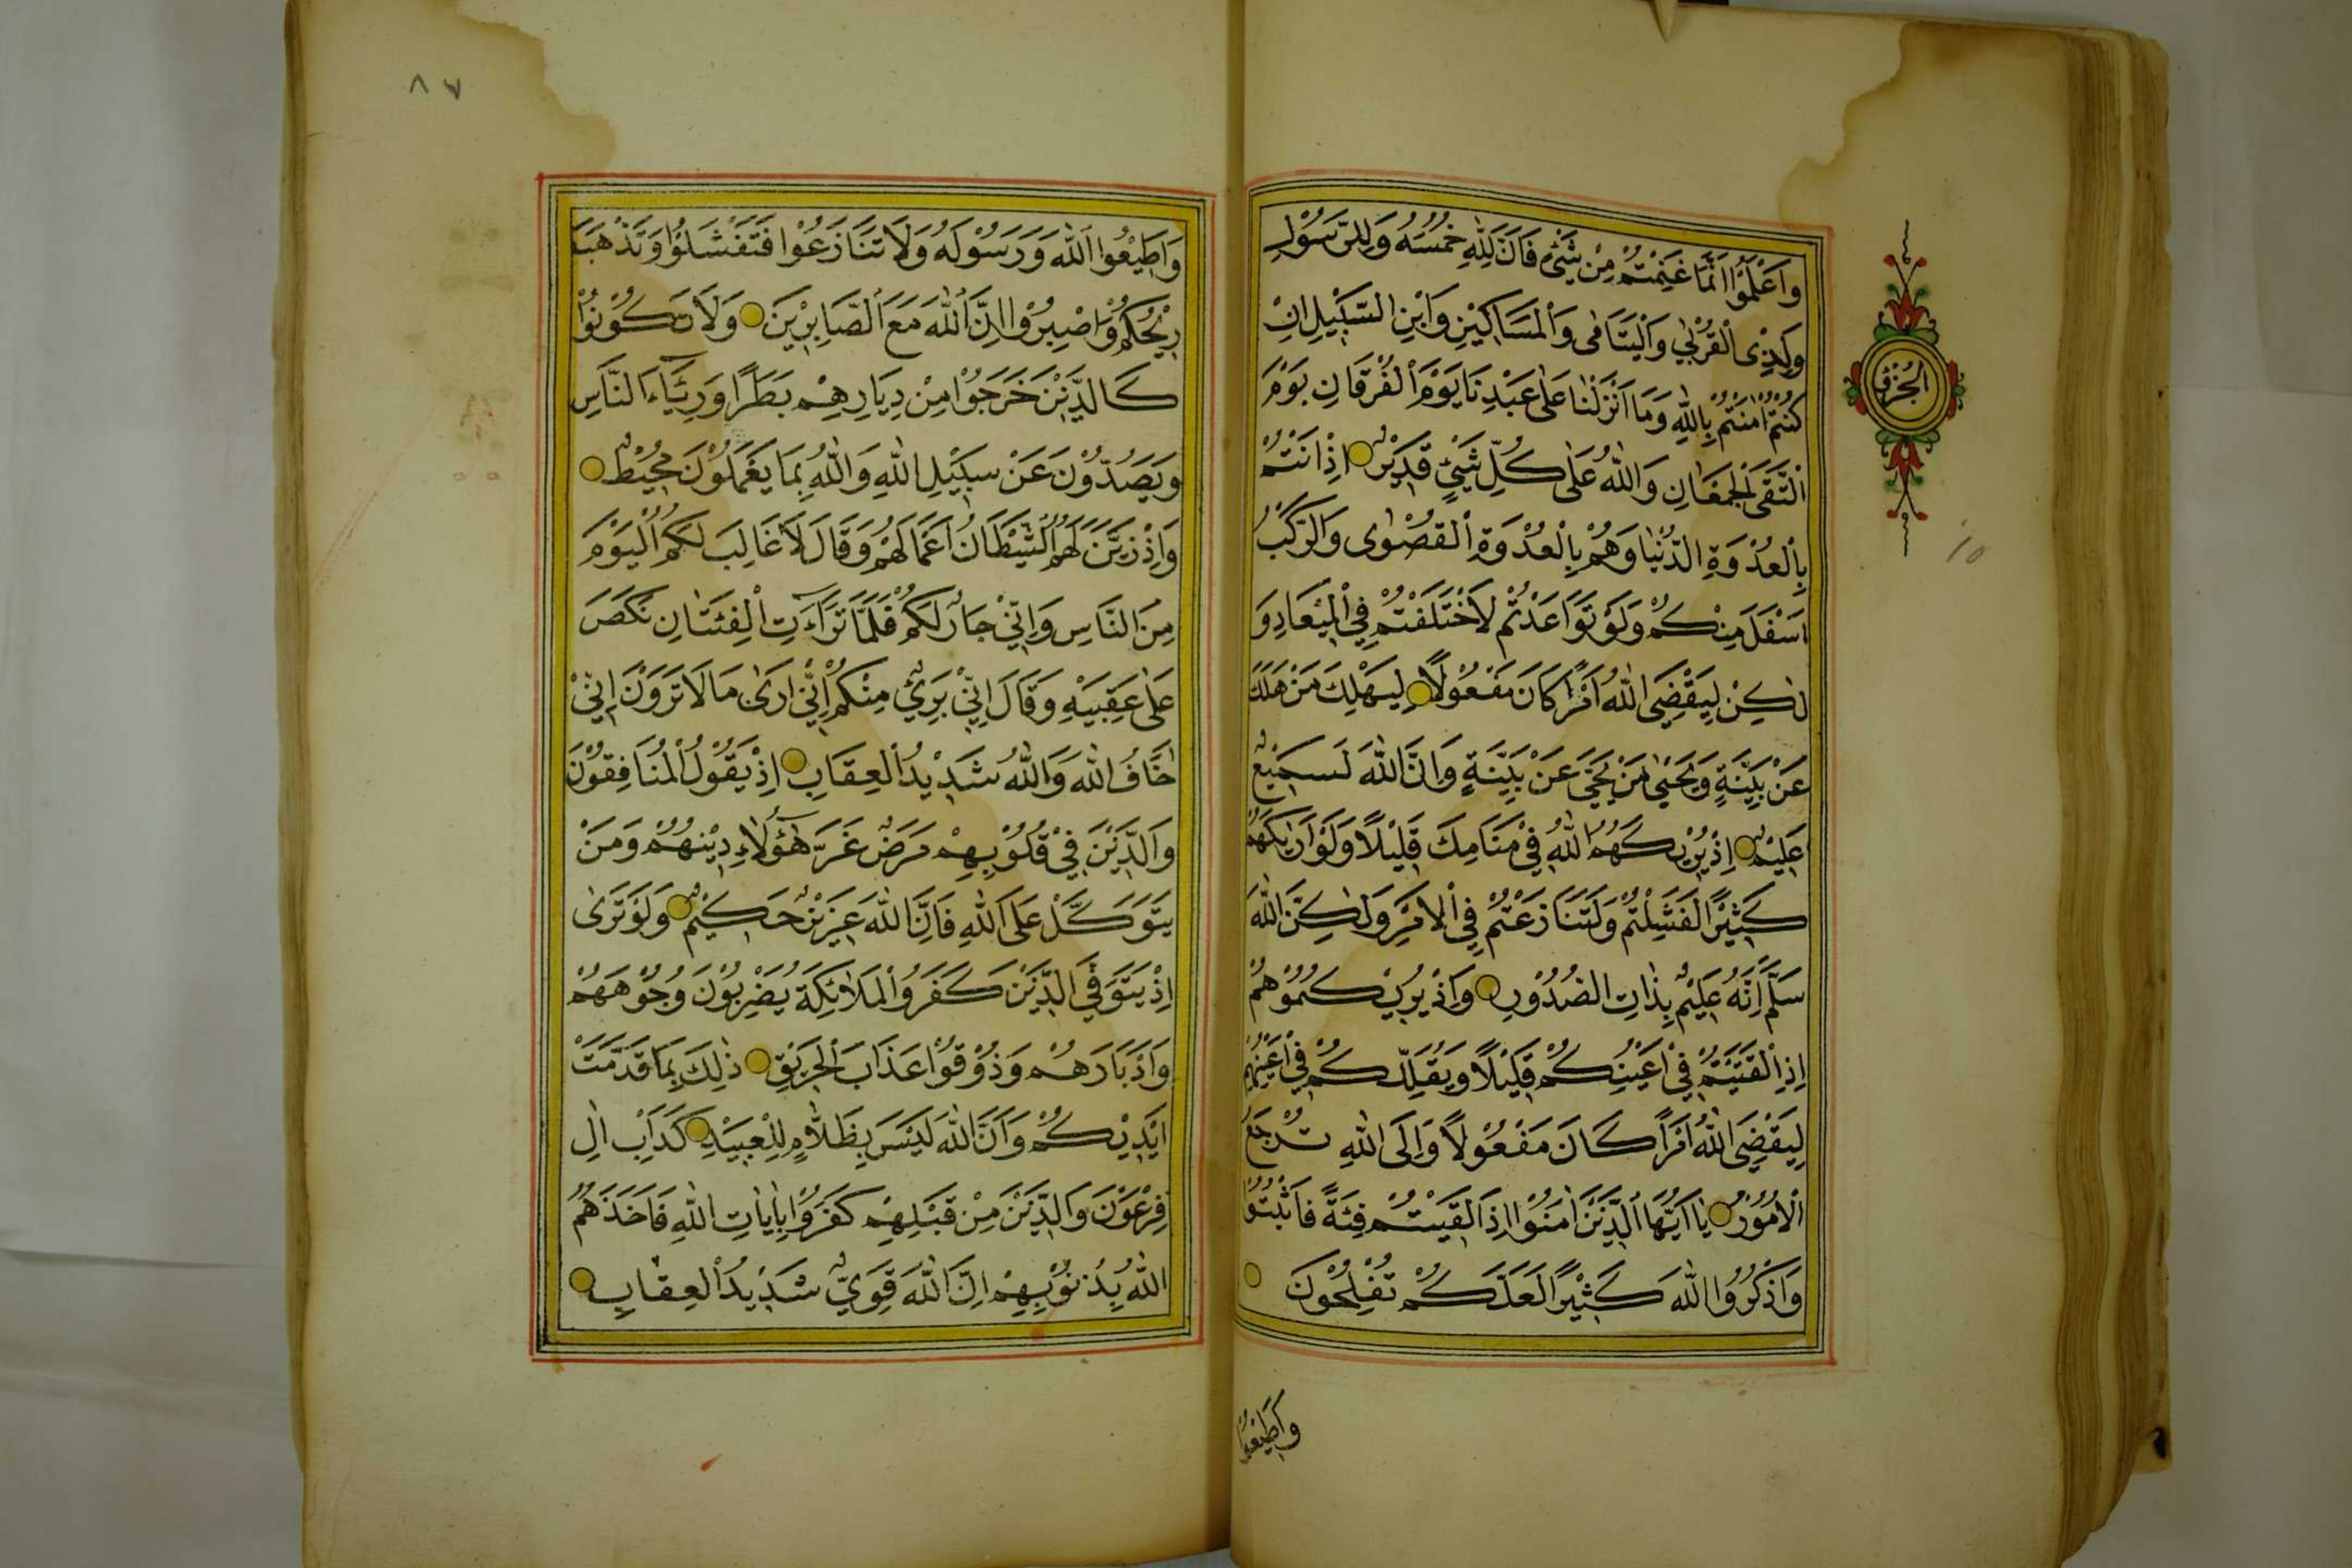 وَاعْلَمُوا اَنَّمَا غَنِمْتُمْ مِنْ شَيْءٍ فَاَنَّ لِلّٰهِ خُمُسَهُ وَلِلرَّسُوْلِ
وَلِذِى الْقُرْبٰي وَالْيَتَامٰى وَالْمَسَاكِيْنِ وَابْنِ السَّبِيْلِ اِنْ
كُنْتُمْ اٰمَنْتُمْ بِاللّٰهِ وَمَا اَنْزَلْنَا عَلٰى عَبْدِنَا يَوْمَ الْفُرْقَانِ يَوْمَ
الْتَقَى الْجَمْعَانِ وَاللّٰهُ عَلٰى كُلِّ شَيْئٍ قَدِيْرٌ اِذْ اَنْتُمْ
بِالْعُدْوَةِ الدُّنْيَا وَهُمْ بِالْعُدْوَةِ الْقُصْوٰى وَالرَّكْبُ
اَسْفَلَ مِنْكُمْ وَلَوْ تَوَاعَدْتُمْ لَاخْتَلَفْتُمْ فِي الْمِيْعَادِ وَ
لٰكِنْ لِيَقْضِىَ اللّٰهُ اَمْرًا كَانَ مَفْعُوْلًا لِيَهْلِكَ مَنْ هَلَكَ
عَنْ بَيِّنَةٍ وَيَحْيٰى مَنْ يَحْيَّ عَنْ بَيِّنَةٍ وَاِنَّ اللّٰهَ لَسَمِيْعٌ
عَلِيْمٌ اِذْ يُرِيْكَهُمُ اللّٰهُ فِيْ مَنَامِكَ قَلِيْلًا وَلَوْ اَرٰيكَهُمْ
كَثِيْرًا لَفَشِلْتُمْ وَلَتَنَازَعْتُمْ فِي الْاَمْرِ وَلٰكِنَّ اللّٰهَ
سَلَّمَ اِنَّهُ عَلِيْمٌ بِذَاتِ الصُّدُوْرِ وَاِذْ يُرِيْكُمُوْهُمْ
اِذِ الْتَقَيْتُمْ فِيْ اَعْيُنِكُمْ قَلِيْلًا وَيُقَلِّلُكُمْ فِيْ اَعْيُنِهِمْ
لِيَقْضِىَ اللّٰهُ اَمْرًا كَانَ مَفْعُوْلًا وَاِلَى اللّٰهِ تُرْجَعُ
الْاُمُوْرُ يَا اَيُّهَا الَّذِيْنَ اٰمَنُوْا اِذَا لَقِيْتُمْ فِئَةً فَاثْبُتُوْا
وَاذْكُرُوا اللّٰهَ كَثِيْرًا لَعَلَّكُمْ تُفْلِحُوْنَ
وَاَطِيْعُوا
الْجُزْؤُ
١٥
٨٧
وَاَطِيْعُوا اللّٰهَ وَرَسُوْلَهُ وَلَا تَنَازَعُوْا فَتَفْشَلُوْا وَتَذْهَبَ
رِيْحُكُمْ وَاصْبِرُوْا اِنَّ اللّٰهَ مَعَ الصَّابِرِيْنَ وَلَا تَكُوْنُوْا
كَالَّذِيْنَ خَرَجُوْا مِنْ دِيَارِهِمْ بَطَرًا وَرِئَآءَ النَّاسِ
وَيَصُدُّوْنَ عَنْ سَبِيْلِ اللّٰهِ وَاللّٰهُ بِمَا يَعْمَلُوْنَ مُحِيْطٌ
وَاِذْ زَيَّنَ لَهُمُ الشَّيْطَانُ اَعْمَالَهُمْ وَقَالَ لَا غَالِبَ لَكُمُ الْيَوْمَ
مِنَ النَّاسِ وَاِنِّيْ جَارٌ لَكُمْ فَلَمَّا تَرَآءَتِ الْفِئَتَانِ نَكَصَ
عَلٰى عَقِبَيْهِ وَقَالَ اِنِّيْ بَرِيْءٌ مِنْكُمْ اِنِّيْ اَرٰى مَا لَا تَرَوْنَ اِنِّيْ
اَخَافُ اللّٰهَ وَاللّٰهُ شَدِيْدُ الْعِقَابِ اِذْ يَقُوْلُ الْمُنَافِقُوْنَ
وَالَّذِيْنَ فِيْ قُلُوْبِهِمْ مَرَضٌ غَرَّ هٰٓؤُلَاءِ دِيْنُهُمْ وَمَنْ
يَتَوَكَّلْ عَلَى اللّٰهِ فَاِنَّ اللّٰهَ عَزِيْزٌ حَكِيْمٌ وَلَوْ تَرٰى
اِذْ يَتَوَفَّى الَّذِيْنَ كَفَرُوا الْمَلَائِكَةُ يَضْرِبُوْنَ وُجُوْهَهُمْ
وَاَدْبَارَهُمْ وَذُوْقُوْا عَذَابَ الْحَرِيْقِ ذٰلِكَ بِمَا قَدَّمَتْ
اَيْدِيْكُمْ وَاَنَّ اللّٰهَ لَيْسَ بِظَلَّامٍ لِلْعَبِيْدِ كَدَاْبِ اٰلِ
فِرْعَوْنَ وَالَّذِيْنَ مِنْ قَبْلِهِمْ كَفَرُوْا بِاٰيَاتِ اللّٰهِ فَاَخَذَهُمُ
اللّٰهُ بِذُنُوْبِهِمْ اِنَّ اللّٰهَ قَوِيٌّ شَدِيْدُ الْعِقَابِ